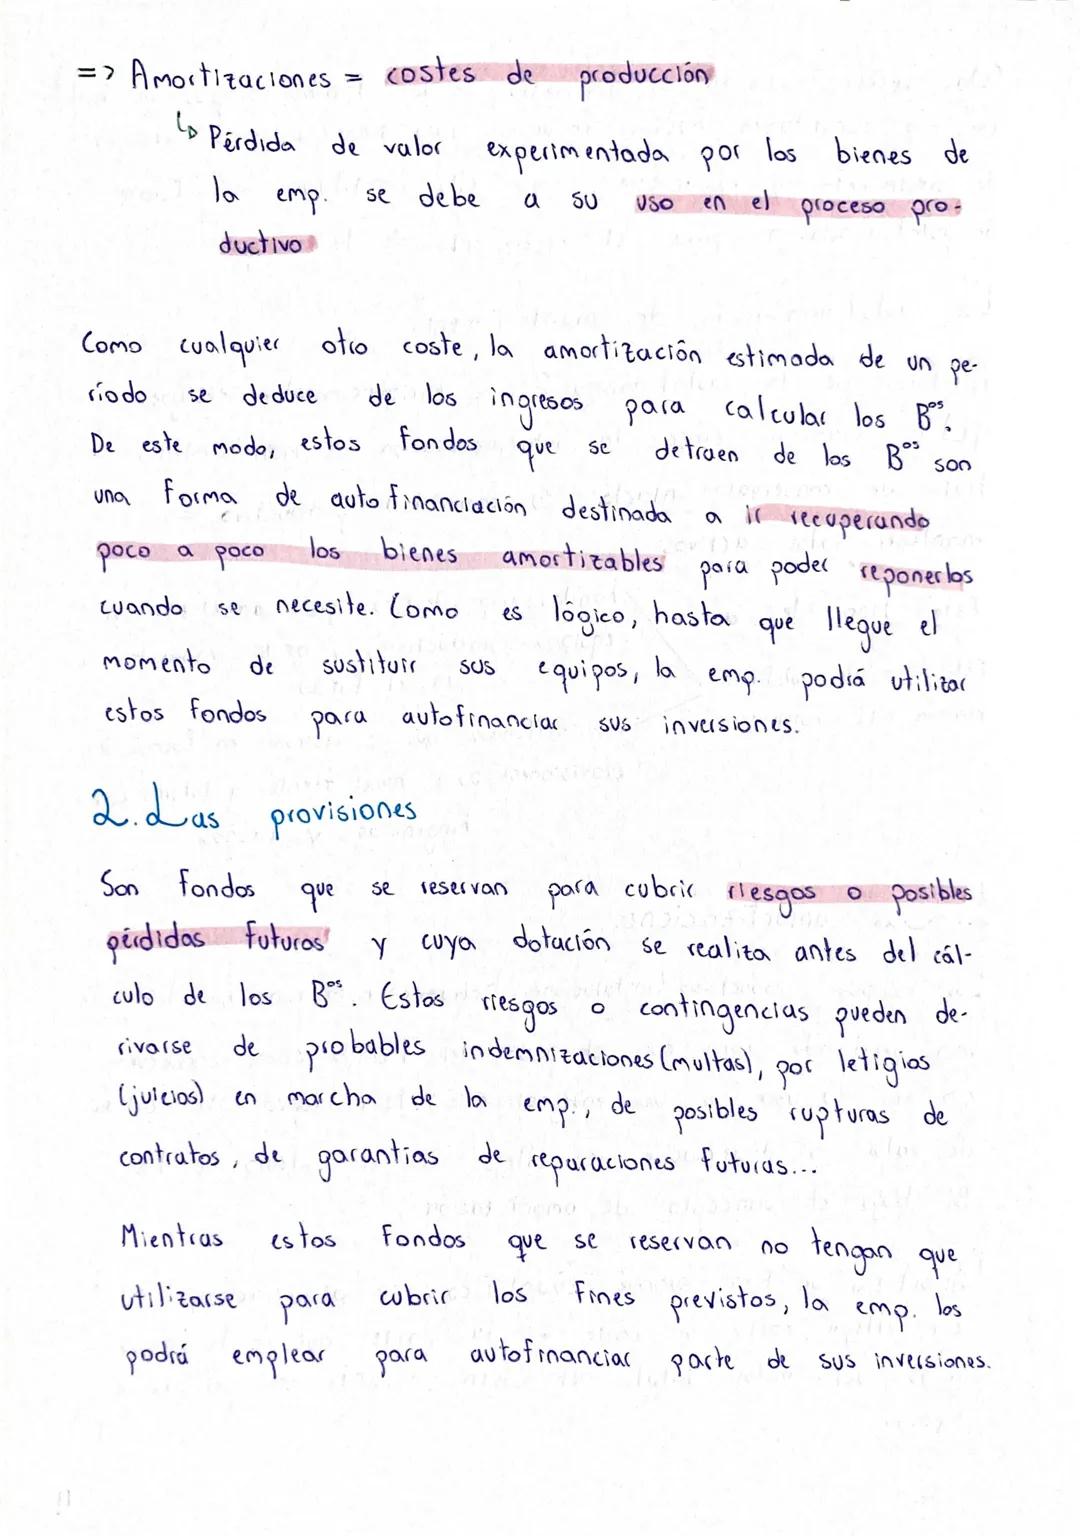 => Amortizaciones = costes de producción
↳ Pérdida de valor experimentada por los bienes de
la emp. se debe a su uso en el proceso pro-
ductivo
Como cualquier otro coste, la amortización estimada de un pe-
ríodo se deduce de los ingresos para calcular los Bºˢ.
De este modo, estos fondos que se detraen de los Bºˢ son
una forma de autofinanciación destinada a ir recuperando
poco a poco los bienes amortizables para poder reponerlos
cuando se necesite. Como es lógico, hasta que llegue el
momento de sustituir sus equipos, la emp. podrá utilizar
estos fondos para autofinanciar sus inversiones.
2. Las provisiones
Son fondos que se reservan para cubrir riesgos o posibles
pérdidas futuras y cuya dotación se realiza antes del cál-
culo de los Bºˢ. Estos riesgos o contingencias pueden de-
rivarse de probables indemnizaciones (multas), por letigios
(juicios) en marcha de la emp., de posibles rupturas de
contratos, de garantías de reparaciones futuras...
Mientras estos fondos que se reservan no tengan que
utilizarse para cubrir los fines previstos, la emp. los
podrá emplear para autofinanciar parte de sus inversiones.